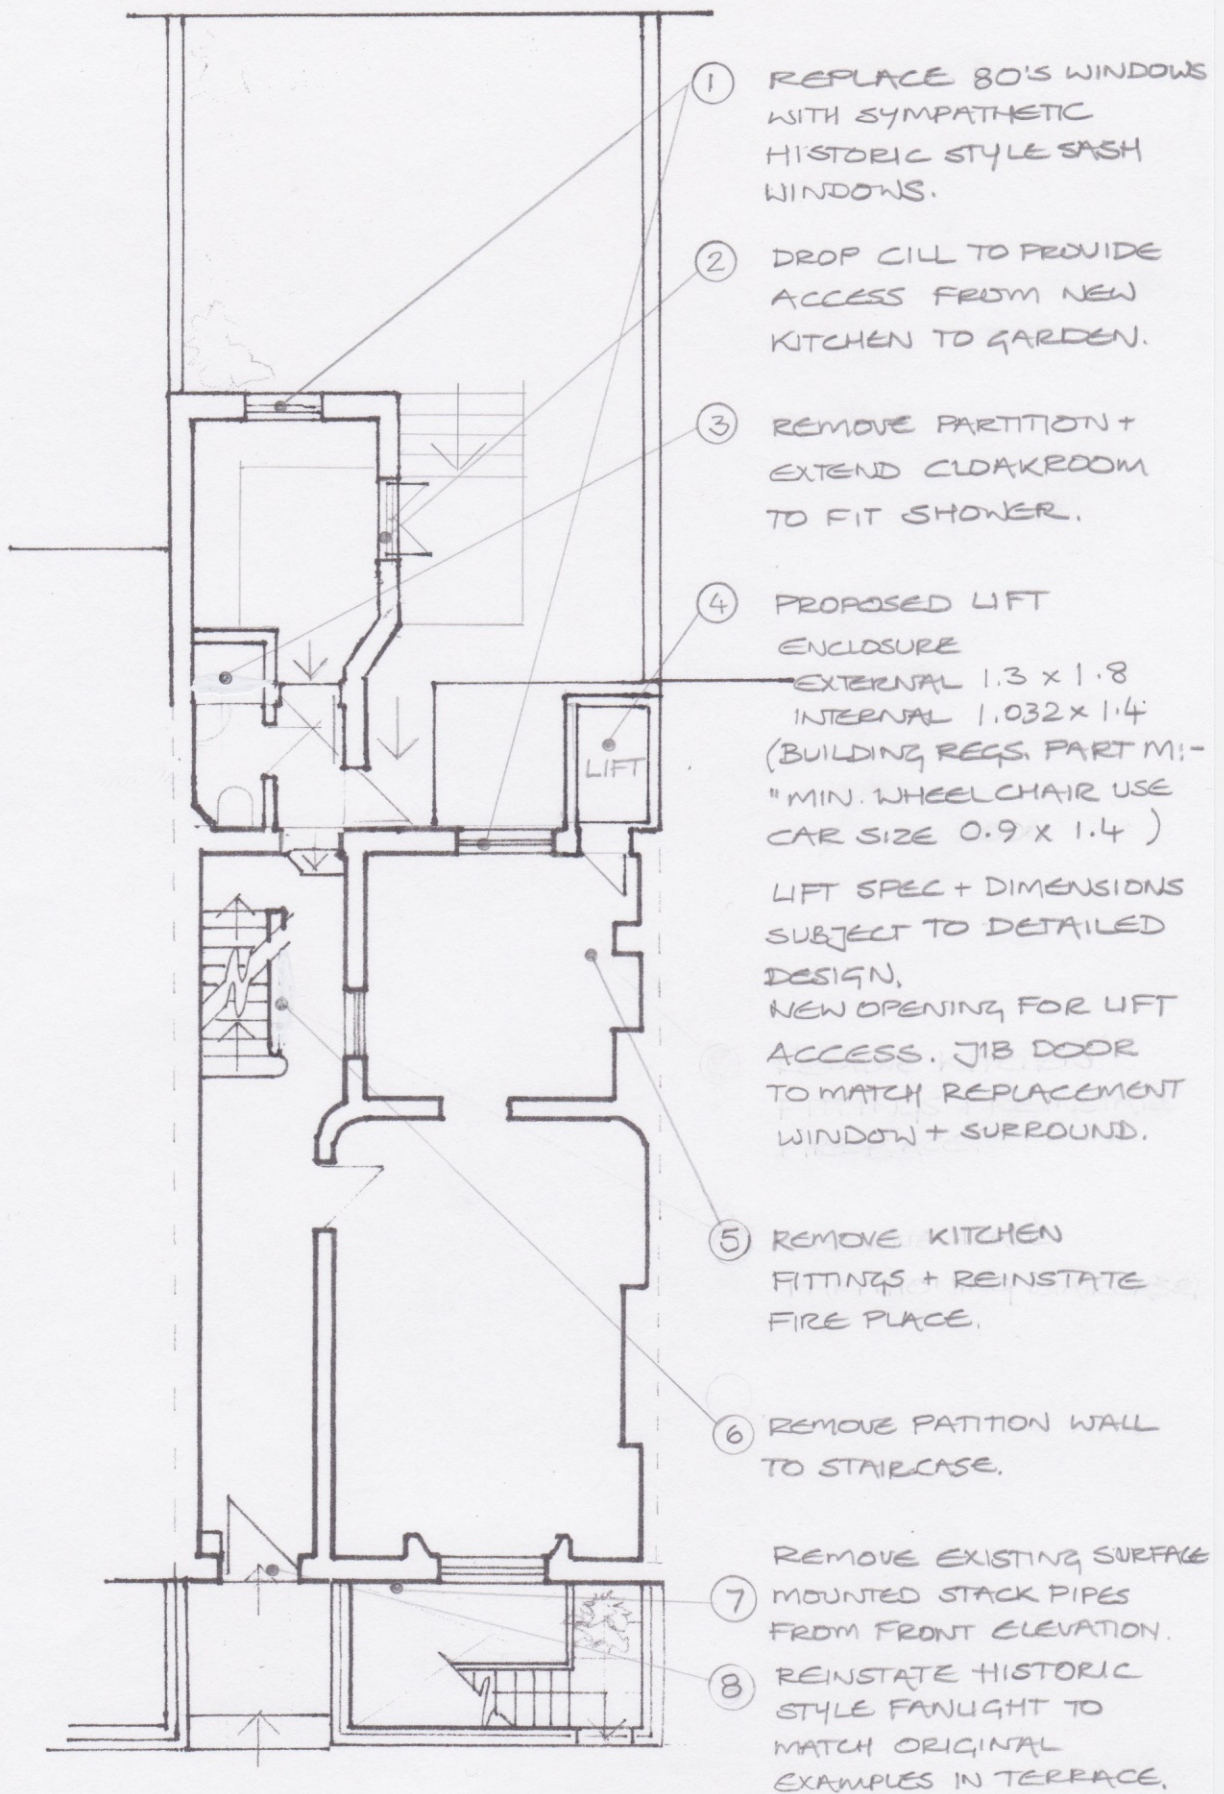 1 REPLACE 80'S WINDOWS
WITH SYMPATHETIC
HISTORIC STYLE SASH
WINDOWS.
2 DROP CILL TO PROVIDE
ACCESS FROM NEW
KITCHEN TO GARDEN.
3 REMOVE PARTITION +
EXTEND CLOAKROOM
TO FIT SHOWER.
4 PROPOSED LIFT
ENCLOSURE
EXTERNAL 1.3 x 1.8
INTERNAL 1.032 x 1.4
(BUILDING REGS. PART M:-
"MIN. WHEELCHAIR USE
CAR SIZE 0.9 x 1.4 )
LIFT SPEC + DIMENSIONS
SUBJECT TO DETAILED
DESIGN.
NEW OPENING FOR LIFT
ACCESS. JIB DOOR
TO MATCH REPLACEMENT
WINDOW + SURROUND.
5 REMOVE KITCHEN
FITTINGS + REINSTATE
FIRE PLACE.
6 REMOVE PATITION WALL
TO STAIRCASE.
REMOVE EXISTING SURFACE
7 MOUNTED STACK PIPES
FROM FRONT ELEVATION.
8 REINSTATE HISTORIC
STYLE FANLIGHT TO
MATCH ORIGINAL
EXAMPLES IN TERRACE.
LIFT